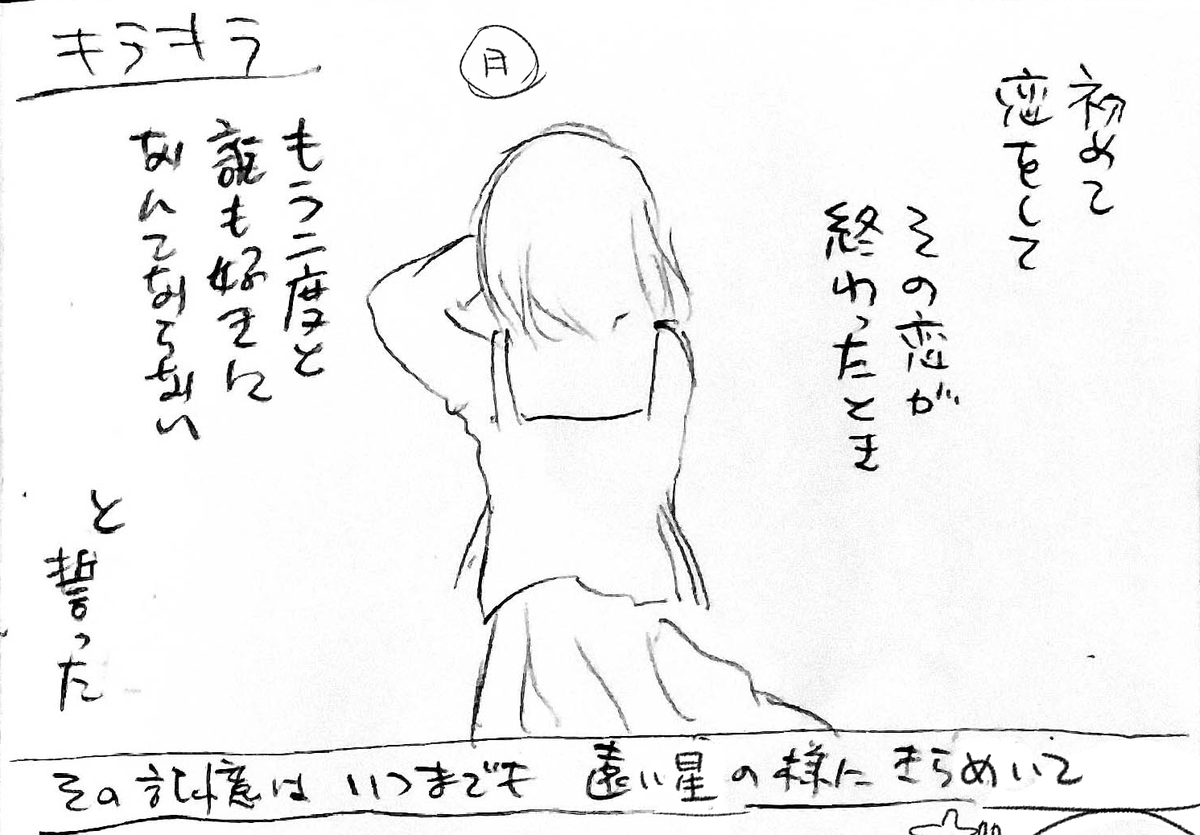 キラキラ
月
初めて
恋をして
その恋が
終わったとき
もう二度と
誰も好きに
なんてならない
と
誓った
その記憶は いつまでも 遠い星の様に きらめいて